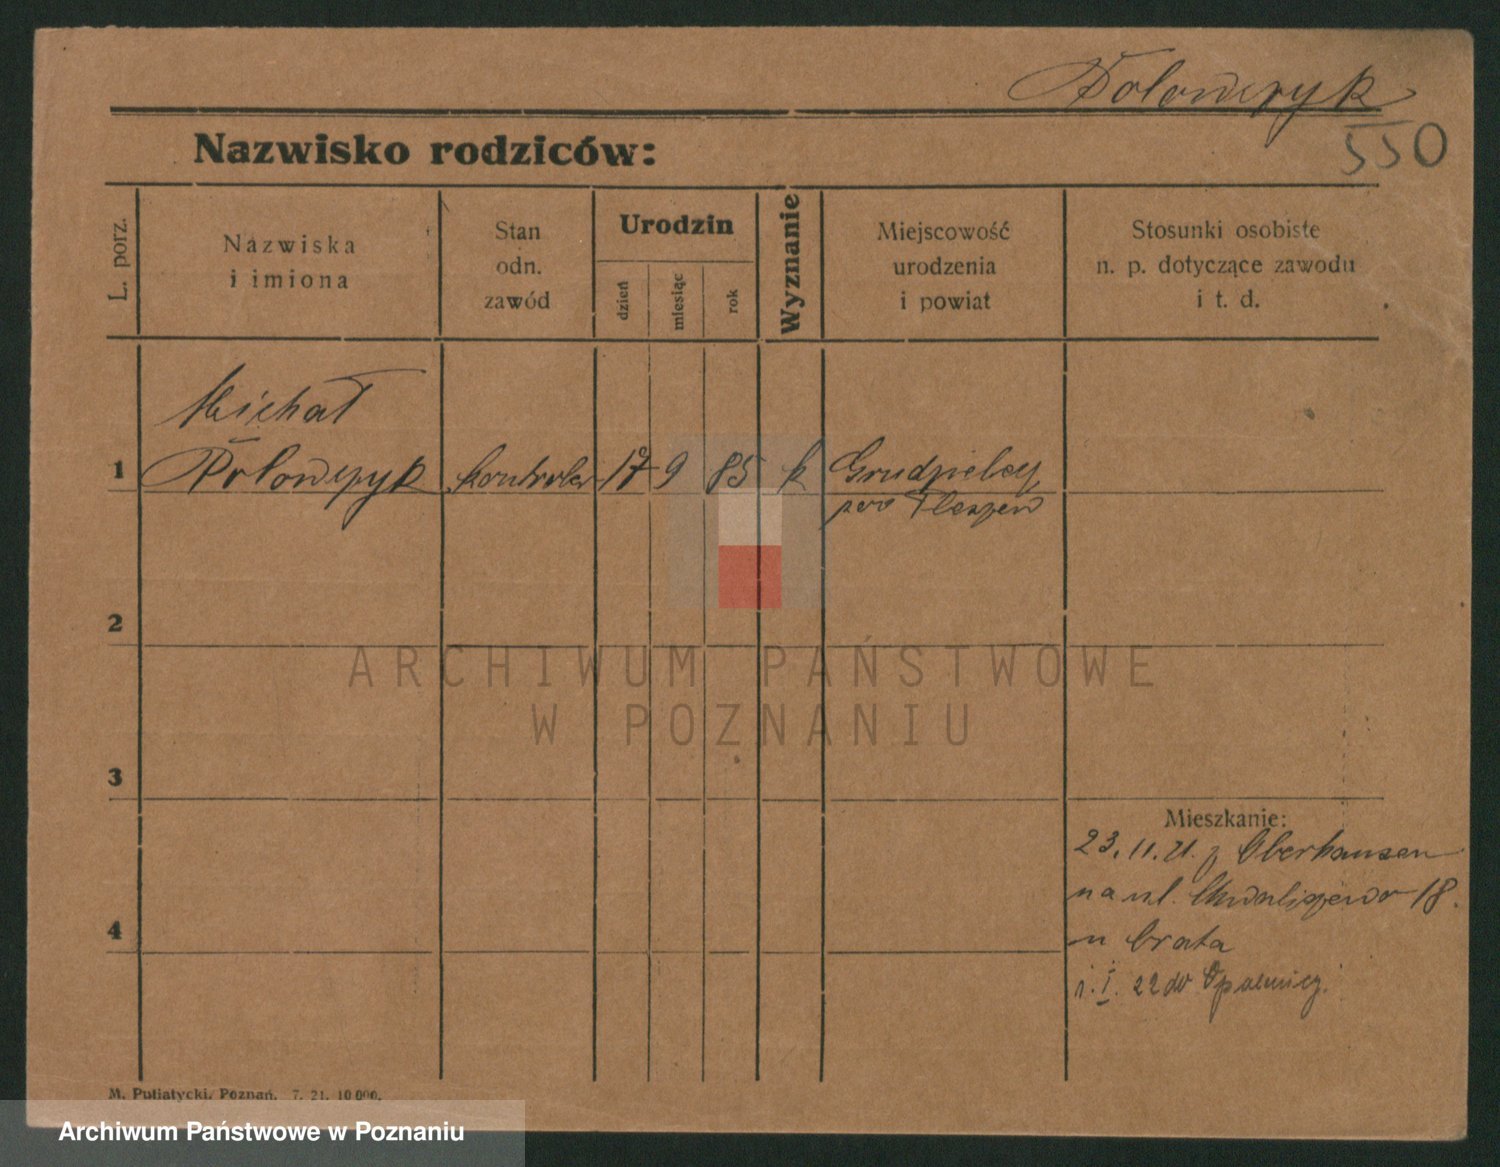 Połowczyk
550
Nazwisko rodziców:
L. porz.
Nazwiska
i imiona
Stan
odn.
zawód
Urodzin
dzień
miesiąc
rok
Wyznanie
Miejscowość
urodzenia
i powiat
Stosunki osobiste
n. p. dotyczące zawodu
i t. d.
Michał
1 Połowczyk kontroler 17 9 85 k Grudzielec
pow Pleszew
2
ARCHIWUM PAŃSTWOWE
W POZNANIU
3
Mieszkanie:
23.11.21. z Oberhausen
na ul. Chwaliszewo 18.
4
u brata
1. I. 22 do Opalenicy.
M. Putiatycki, Poznań. 7. 21. 10 000.
Archiwum Państwowe w Poznaniu